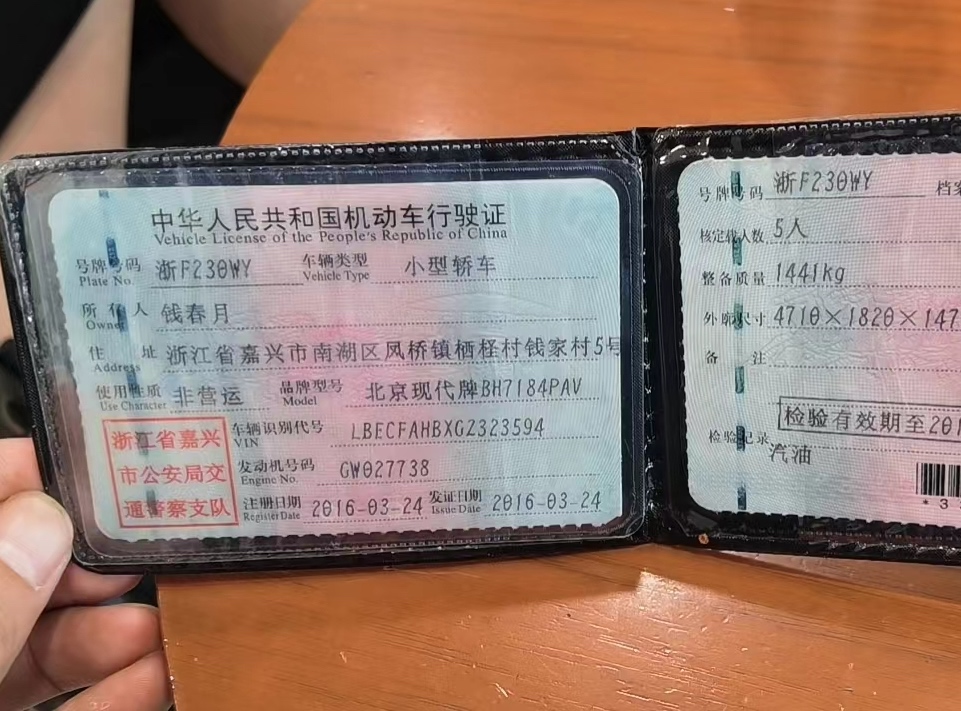 中华人民共和国机动车行驶证
Vehicle License of the People's Republic of China
号牌号码 浙F230WY 车辆类型 小型轿车
Plate No. Vehicle Type
所有人 钱春月
Owner
住 址 浙江省嘉兴市南湖区凤桥镇栖柽村钱家村5号
Address
使用性质 非营运 品牌型号 北京现代牌BH7184PAV
Use Character Model
浙江省嘉兴
市公安局交
通警察支队
车辆识别代号 LBECFAHBXG2323594
VIN
发动机号码 GW027738
Engine No.
注册日期 2016-03-24 发证日期 2016-03-24
Register Date Issue Date
号牌号码 浙F230WY 档案
核定载人数 5人
整备质量 1441kg
外廓尺寸 4710×1820×147
备 注
检验有效期至201
检验记录
汽油
*3